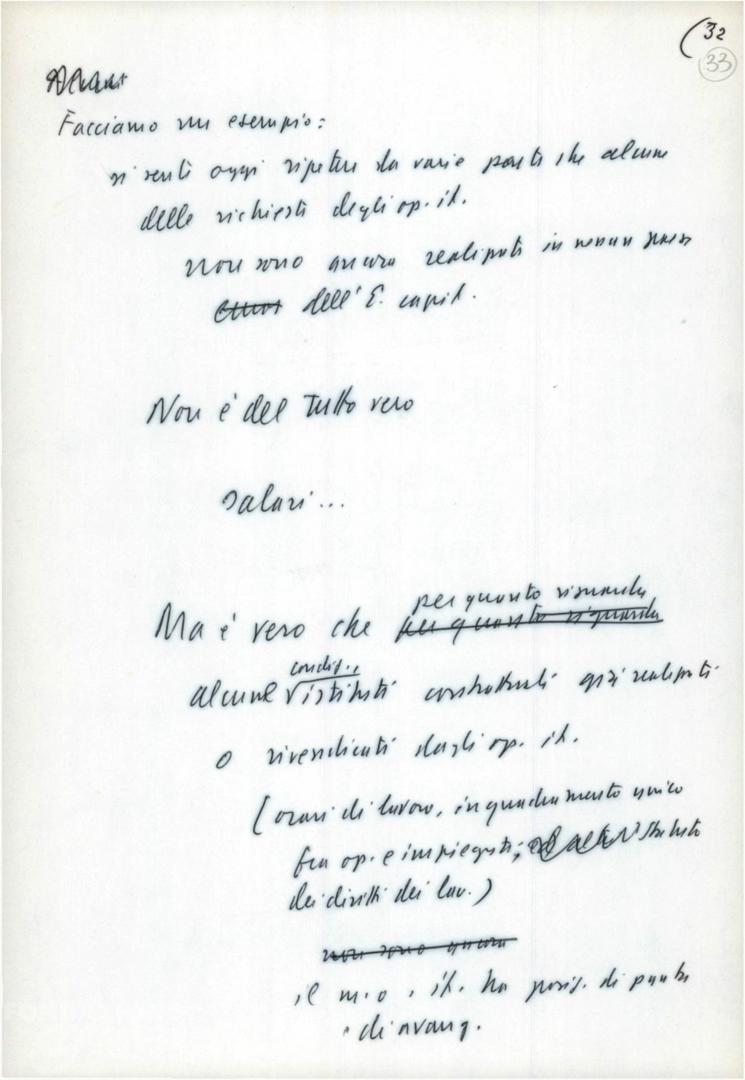 (32
33
Facciamo un esempio:
si senti oggi ripetere da varie parti che alcune
delle richiesti degli op. it.
non sono ancora realizzati in nessun paese
dell'E. capit.
Non è del tutto vero
salari...
per quanto riguarda
Ma è vero che per quanto riguarda
condiz.
alcune istituti contrattuali già realizzati
o rivendicati dagli op. it.
(orari di lavoro, inquadramento unico
fra op. e impiegati; Statuto
dei diritti dei lav.)
non sono ancora
il m.o. it. ha posiz. di punta
e di avang.